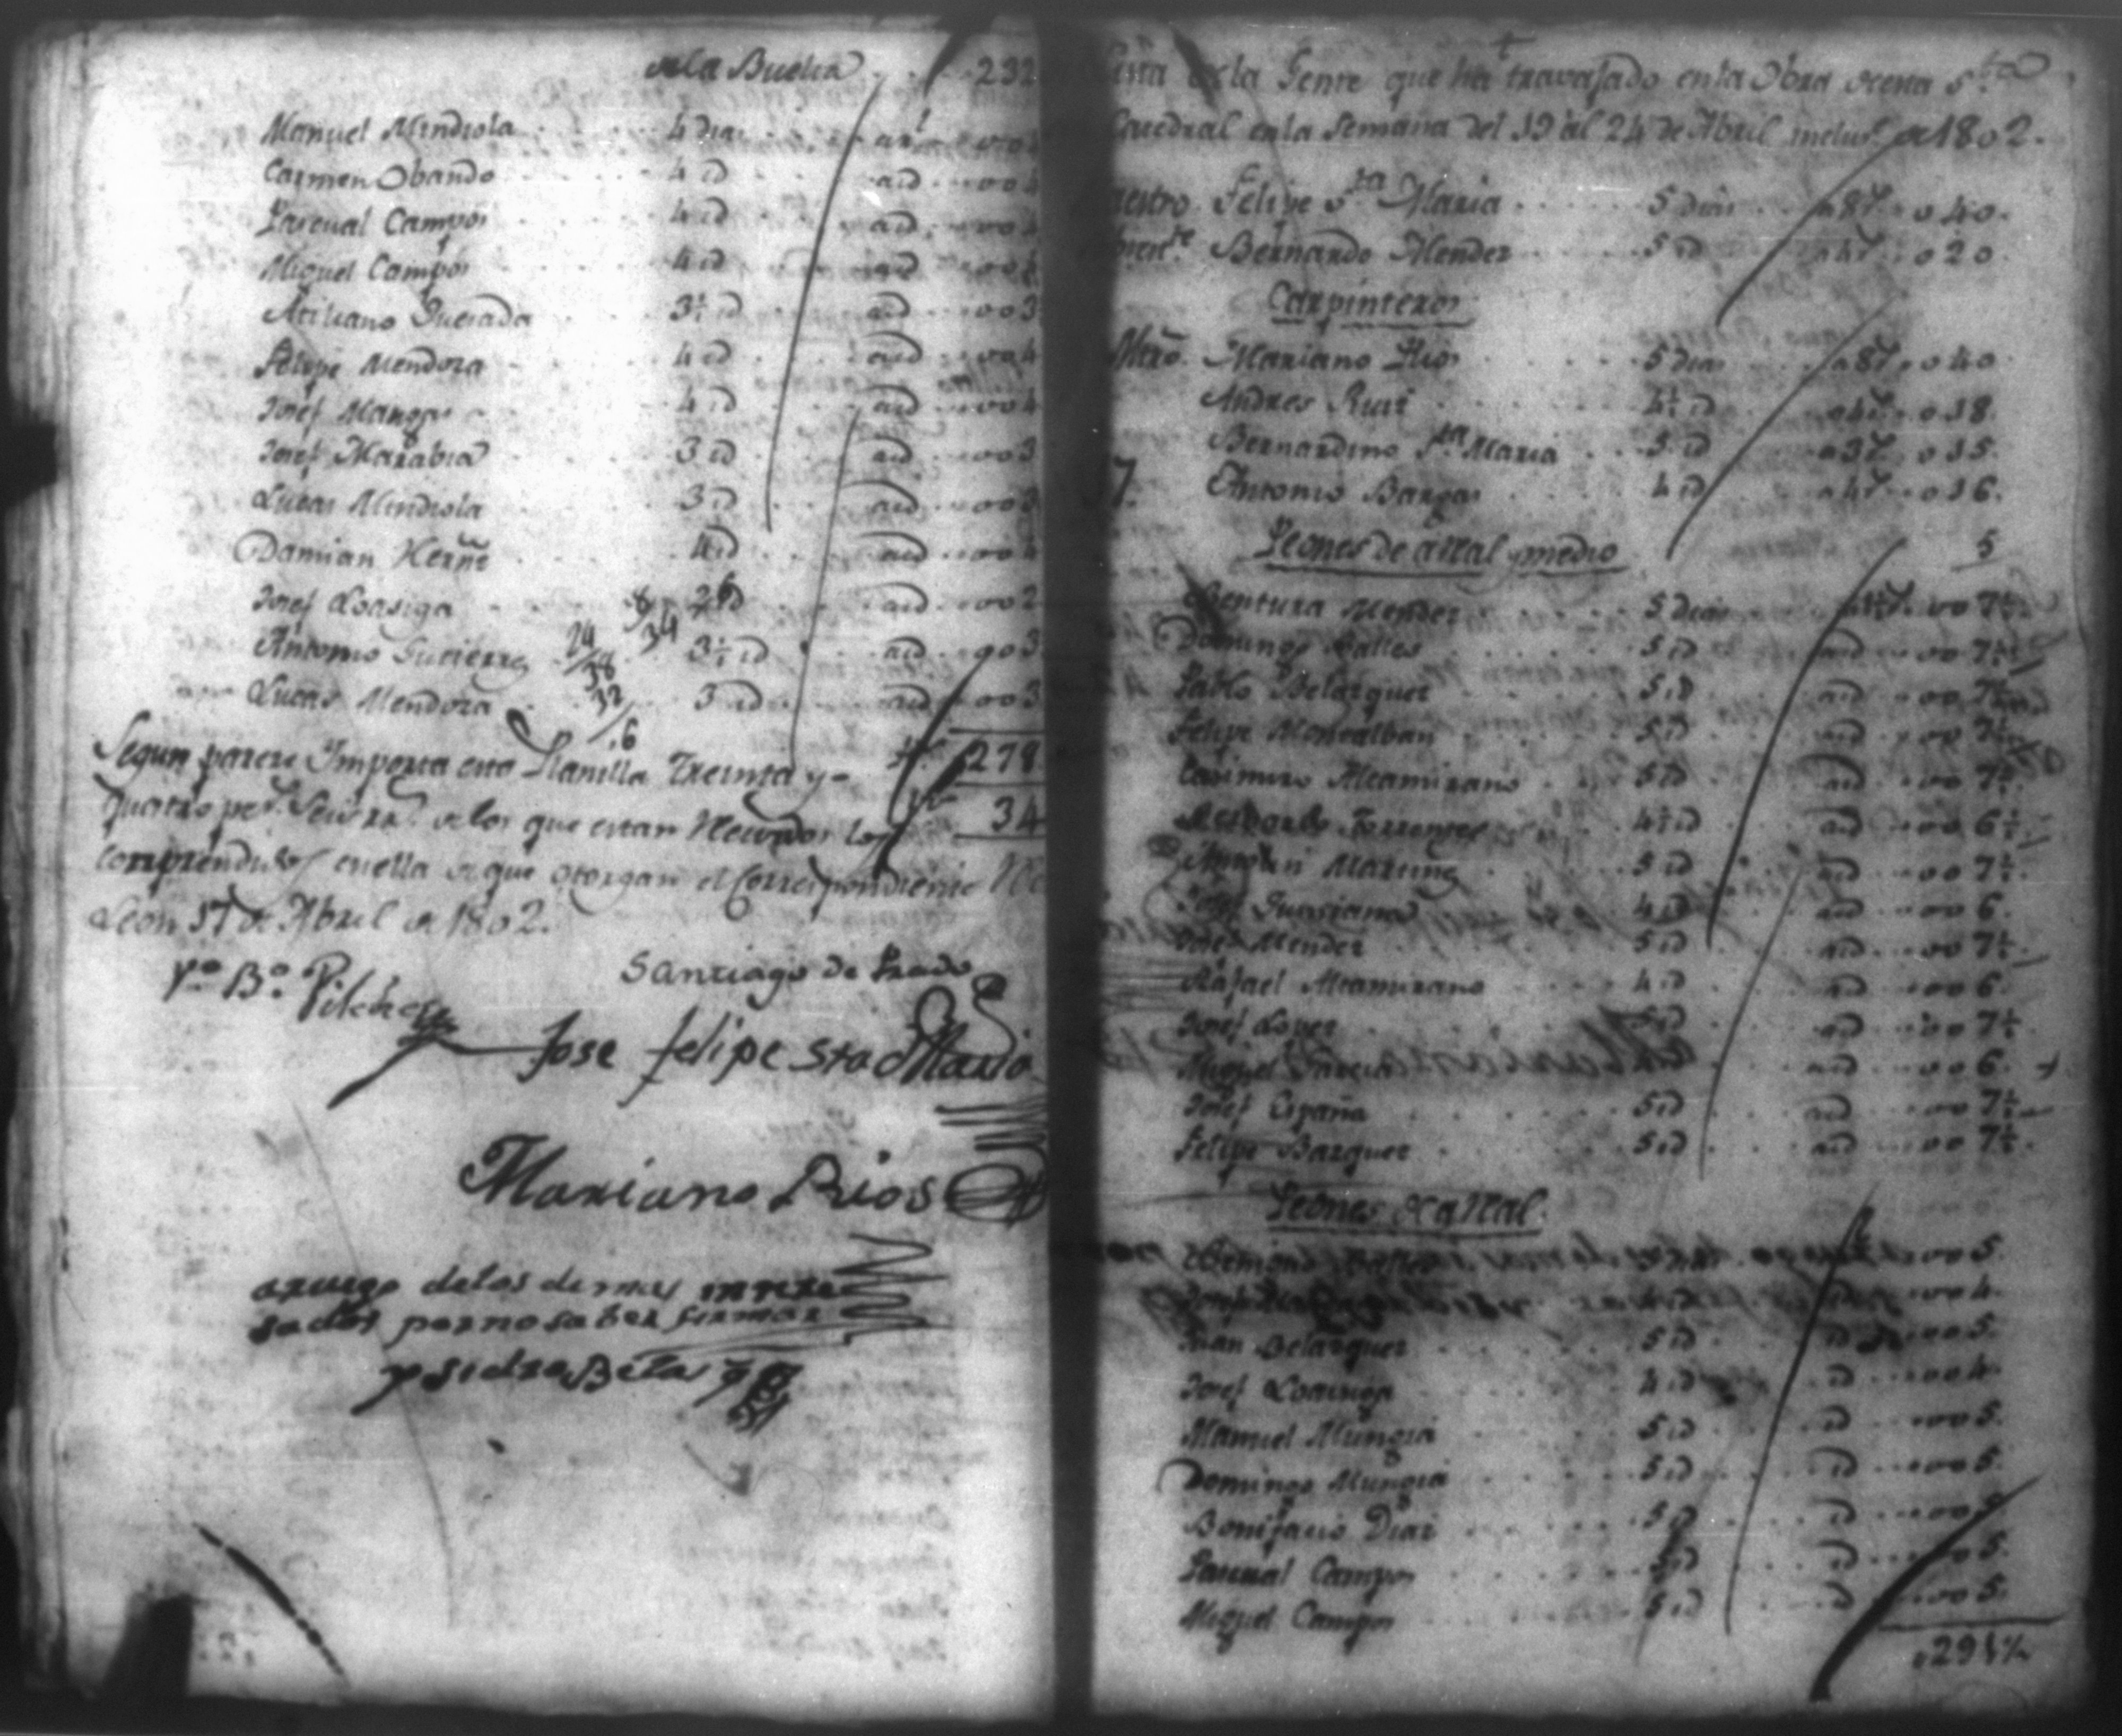 de la Buelta . . . 232
Manuel Mendiola . . . 4 dias . . . a 1 rl . . . 004
Carmen Obando . . . 4 id . . . a id . . . 004
Pascual Campos . . . 4 id . . . a id . . . 004
Miguel Campos . . . 4 id . . . a id . . . 004
Atiliano Quesada . . . 3½ id . . . a id . . . 003
Felipe Mendoza . . . 4 id . . . a id . . . 004
Josef Manga . . . 4 id . . . a id . . . 004
Josef Marabia . . . 3 id . . . a id . . . 003
Lucas Mendiola . . . 3 id . . . a id . . . 003
Damian Hernz . . . 4 id . . . a id . . . 004
Josef Loasiga . . . 2 id . . . a id . . . 002
Antonio Gutierrez . . . 3½ id . . . a id . . . 003
Lucas Mendoza . . . 3 id . . . a id . . . 003
24 / 38
32
/.6
34
Segun parece Importa esta Planilla Treinta y 278
quatro ps. de los que estan Recividos los 34
comprendidos en ella de que otorgan el Correspondiente
Leon 17 de Abril de 1802.
Vo. Bo. Pilches
Santiago de Prado
Jose felipe Sta Maria
Mariano Rios
a ruego de los demas intere
sados por no saber firmar
Ysidro Beta
de la Gente que ha travajado en la Obra de esta Sta
Catedral en la Semana del 19 al 24 de Abril inclus.e de 1802.
Felipe Sta Maria . . . 5 dias . . . a 8 r . . 040.
Bernardo Mendez . . . 5 id . . . a 4 r . . 020.
Carpinteros
Mtro. Mariano Rios . . . 5 dias . . . a 8 r . . 040
Andres Ruiz . . . 4½ id . . . a 4 r . . 018.
Bernardino Sta Maria . . . 5 id . . . a 3 r . . 015.
Antonio Bargas . . . 4 id . . . a 4 r . . 016.
Peones de a Real y medio 5
Bentura Mendez . . . 5 dias . . . a 1½ r . . 007½.
Domingo Salles . . . 5 id . . . a id . . . 007½.
Pablo Belazquez . . . 5 id . . . a id . . . 007½
Felipe Montalban . . . 5 id . . . a id . . . 007½
Casimiro Altamirano . . . 5 id . . . a id . . . 007½
Torrentes . . . 4½ id . . . a id . . . 006½.
Martinez . . . 5 id . . . a id . . . 007½.
Josef . . . 4 id . . . a id . . . 006.
Josef Mendez . . . 5 id . . . a id . . . 007½.
Rafael Altamirano . . . 4 id . . . a id . . . 006.
Josef Lopez . . . 5 id . . . a id . . . 007½.
Miguel Garcia . . . a id . . . 006.
Josef España . . . 5 id . . . a id . . . 007½
Felipe Bazquez . . . 5 id . . . a id . . . 007½.
Peones de a Real.
. . . 005.
. . . 4 id . . . 004.
Juan Belazquez . . . 5 id . . . id . . . 005.
Josef Loasiga . . . 4 id . . . id . . . 004.
Manuel Munguia . . . 5 id . . . id . . . 005.
Domingo Munguia . . . 5 id . . . id . . . 005.
Bonifacio Diaz . . . 5 id . . . id . . . 005
Pascual Campos . . . 5 id . . . id . . . 005.
Miguel Campos . . . 5 id . . . id . . . 005.